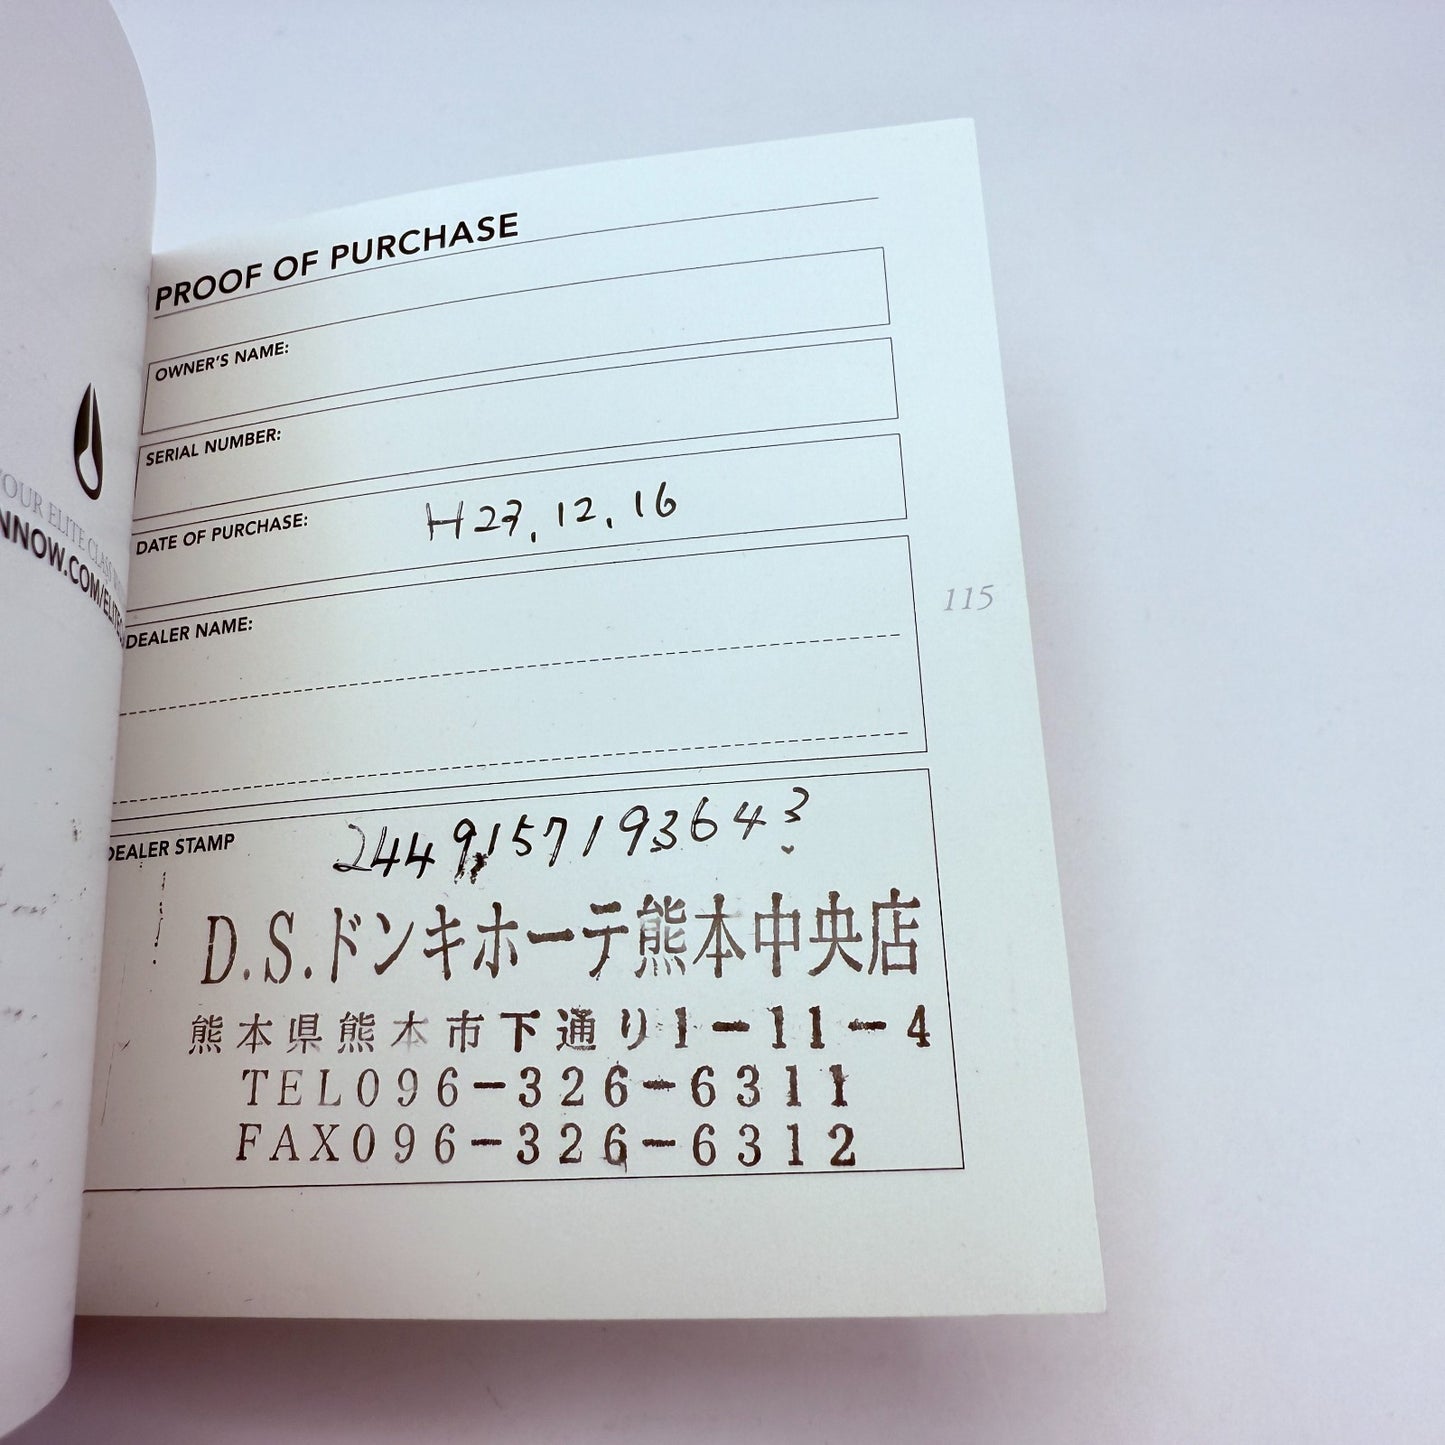 YOUR ELITE CLASS
NNOW.COM/ELITEC
PROOF OF PURCHASE
OWNER'S NAME:
SERIAL NUMBER:
DATE OF PURCHASE: H27.12.16
DEALER NAME:
115
DEALER STAMP
2449157193643
D.S.ドンキホーテ熊本中央店
熊本県熊本市下通り1-11-4
TEL096-326-6311
FAX096-326-6312